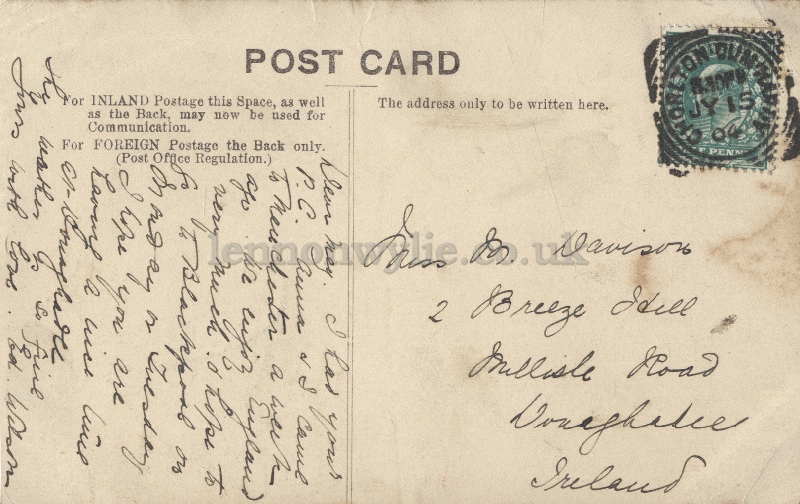 POST CARD
For INLAND Postage this Space, as well
as the Back, may now be used for
Communication.
For FOREIGN Postage the Back only.
(Post Office Regulation.)
The address only to be written here.
Dear May. I had your
P.C. Anna & I came
to Manchester a week
ago. We enjoy England
very much. I hope to
go to Blackpool on
Monday or Tuesday
I hope you are
having a nice time
at Donaghadee
the weather is so fine
Yours with love. Ed. Watson
Miss M. Davison
2 Breeze Hill
Millisle Road
Donaghadee
Ireland
JY 15
04
PENNY
lennonwylie.co.uk